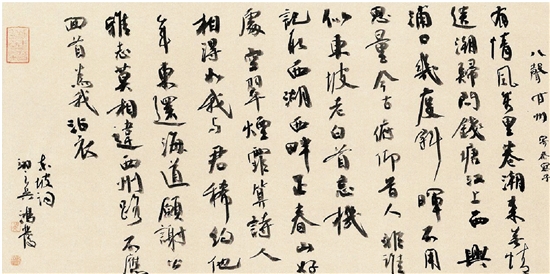 八聲甘州 寄參寥子
有情風萬里卷潮来無情
送潮歸問錢塘江上西興
浦口幾度斜暉不用
思量今古俯仰昔人非誰
似東坡老白首忘機
記取西湖西畔正春山好
處空翠煙霏算詩人
相得如我與君稀約他
年東還海道願謝公
雅志莫相違西州路不應
回首為我沾衣
東坡詞